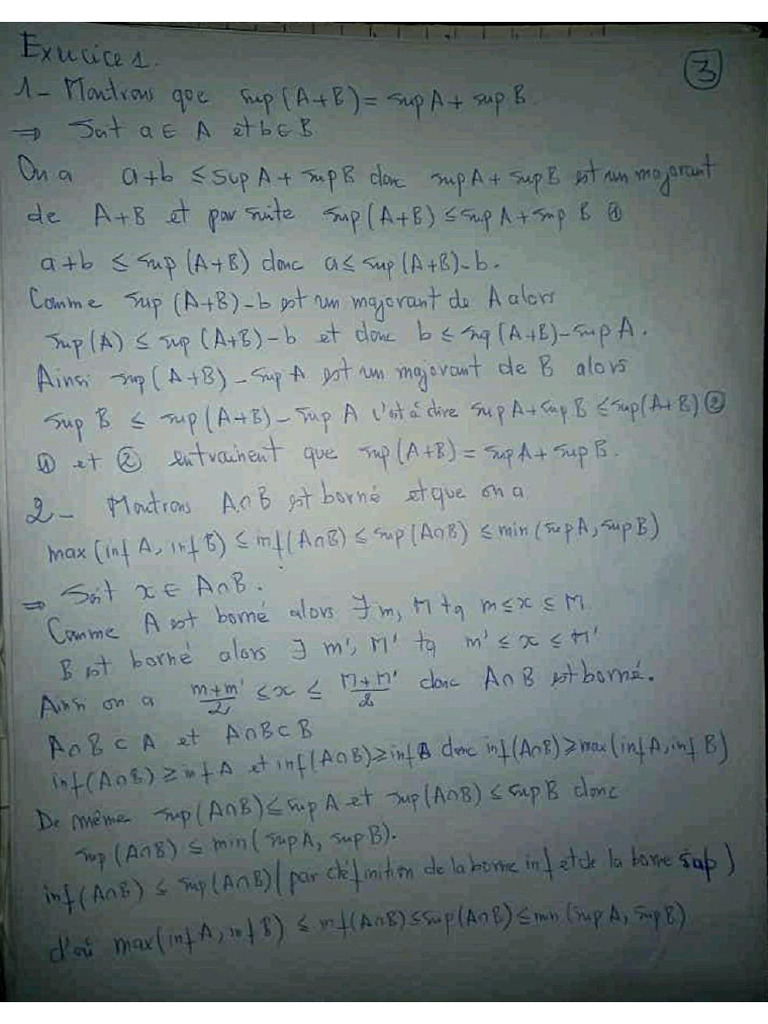 Exercice 1.
③
1- Montrons que sup(A+B) = sup A + sup B
⇒ Soit a ∈ A et b ∈ B
On a a+b ≤ sup A + sup B donc sup A + sup B est un majorant
de A+B et par suite sup(A+B) ≤ sup A + sup B ①
a+b ≤ sup(A+B) donc a ≤ sup(A+B)-b.
Comme sup(A+B)-b est un majorant de A alors
sup(A) ≤ sup(A+B)-b et donc b ≤ sup(A+B)-sup A.
Ainsi sup(A+B)-sup A est un majorant de B alors
sup B ≤ sup(A+B)-sup A c'est à dire sup A + sup B ≤ sup(A+B) ②
① et ② entrainent que sup(A+B) = sup A + sup B.
2- Montrons A∩B est borné et que on a
max(inf A, inf B) ≤ inf(A∩B) ≤ sup(A∩B) ≤ min(sup A, sup B)
⇒ Soit x ∈ A∩B.
Comme A est borné alors ∃ m, M tq m ≤ x ≤ M
B est borné alors ∃ m', M' tq m' ≤ x ≤ M'
Ainsi on a (m+m')/2 ≤ x ≤ (M+M')/2 donc A∩B est borné.
A∩B ⊂ A et A∩B ⊂ B
inf(A∩B) ≥ inf A et inf(A∩B) ≥ inf B donc inf(A∩B) ≥ max(inf A, inf B)
De même sup(A∩B) ≤ sup A et sup(A∩B) ≤ sup B donc
sup(A∩B) ≤ min(sup A, sup B).
inf(A∩B) ≤ sup(A∩B) (par définition de la borne inf et de la borne sup)
d'où max(inf A, inf B) ≤ inf(A∩B) ≤ sup(A∩B) ≤ min(sup A, sup B)